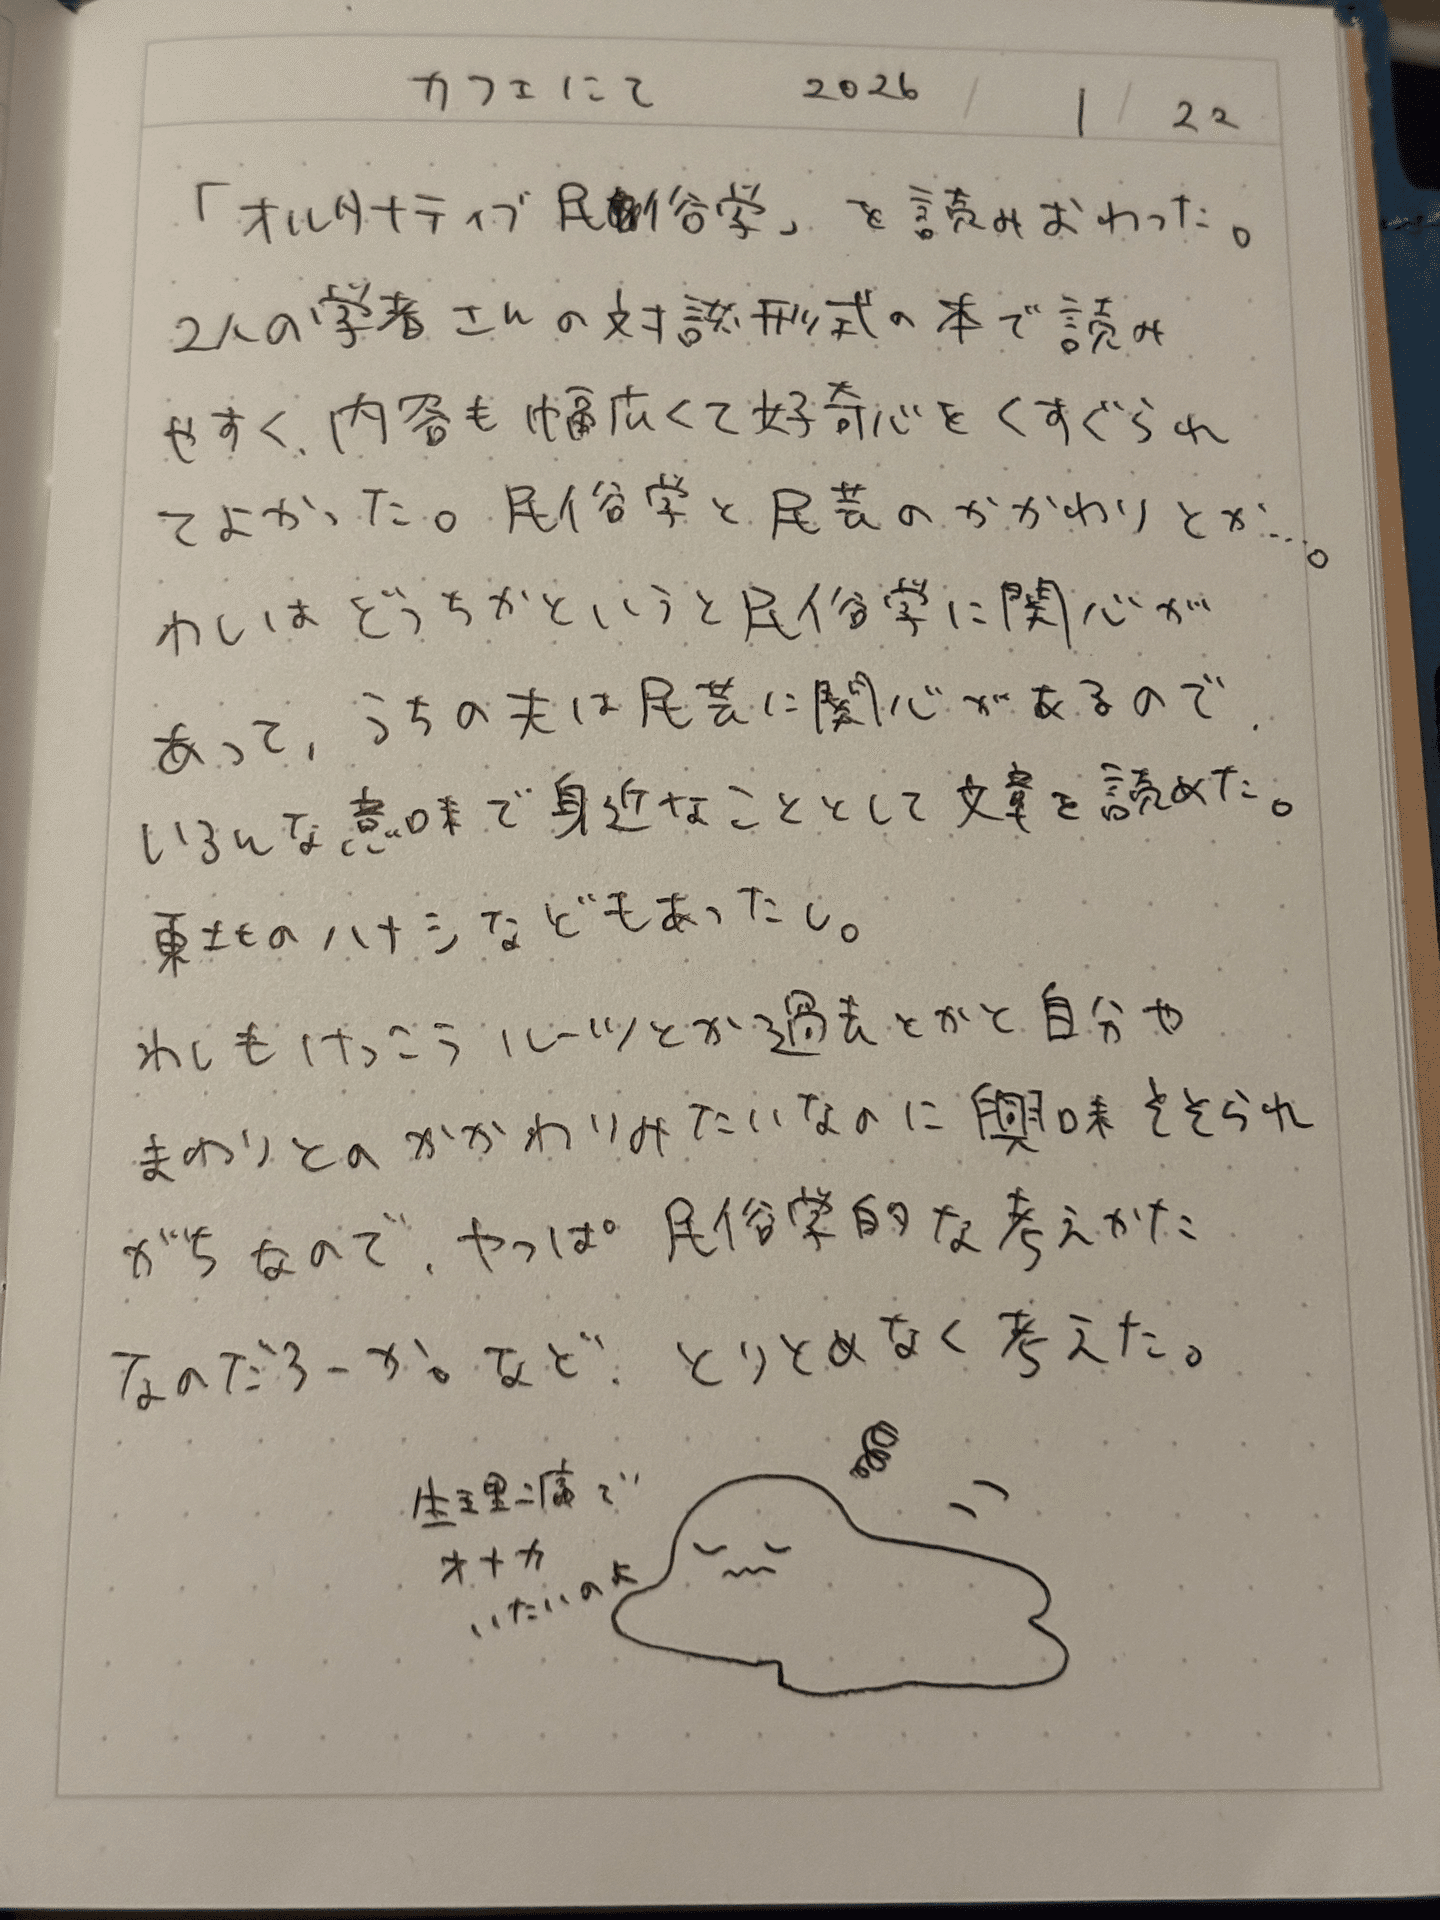 カフェにて 2026 / 1 / 22
「オルタナティブ民俗学」を読みおわった。
2人の学者さんの対談形式の本で読み
やすく、内容も幅広くて好奇心をくすぐられ
てよかった。民俗学と民芸のかかわりとか…。
わしはどっちかというと民俗学に関心が
あって、うちの夫は民芸に関心があるので、
いろんな意味で身近なこととして文章を読めた。
東北のハナシなどもあったし。
わしもけっこうルーツとか過去とかと自分や
まわりとのかかわりみたいなのに興味そそられ
がちなので、やっぱ民俗学的な考えかた
なのだろーか。など、とりとめなく考えた。
生理痛で
オナカ
いたいのよ